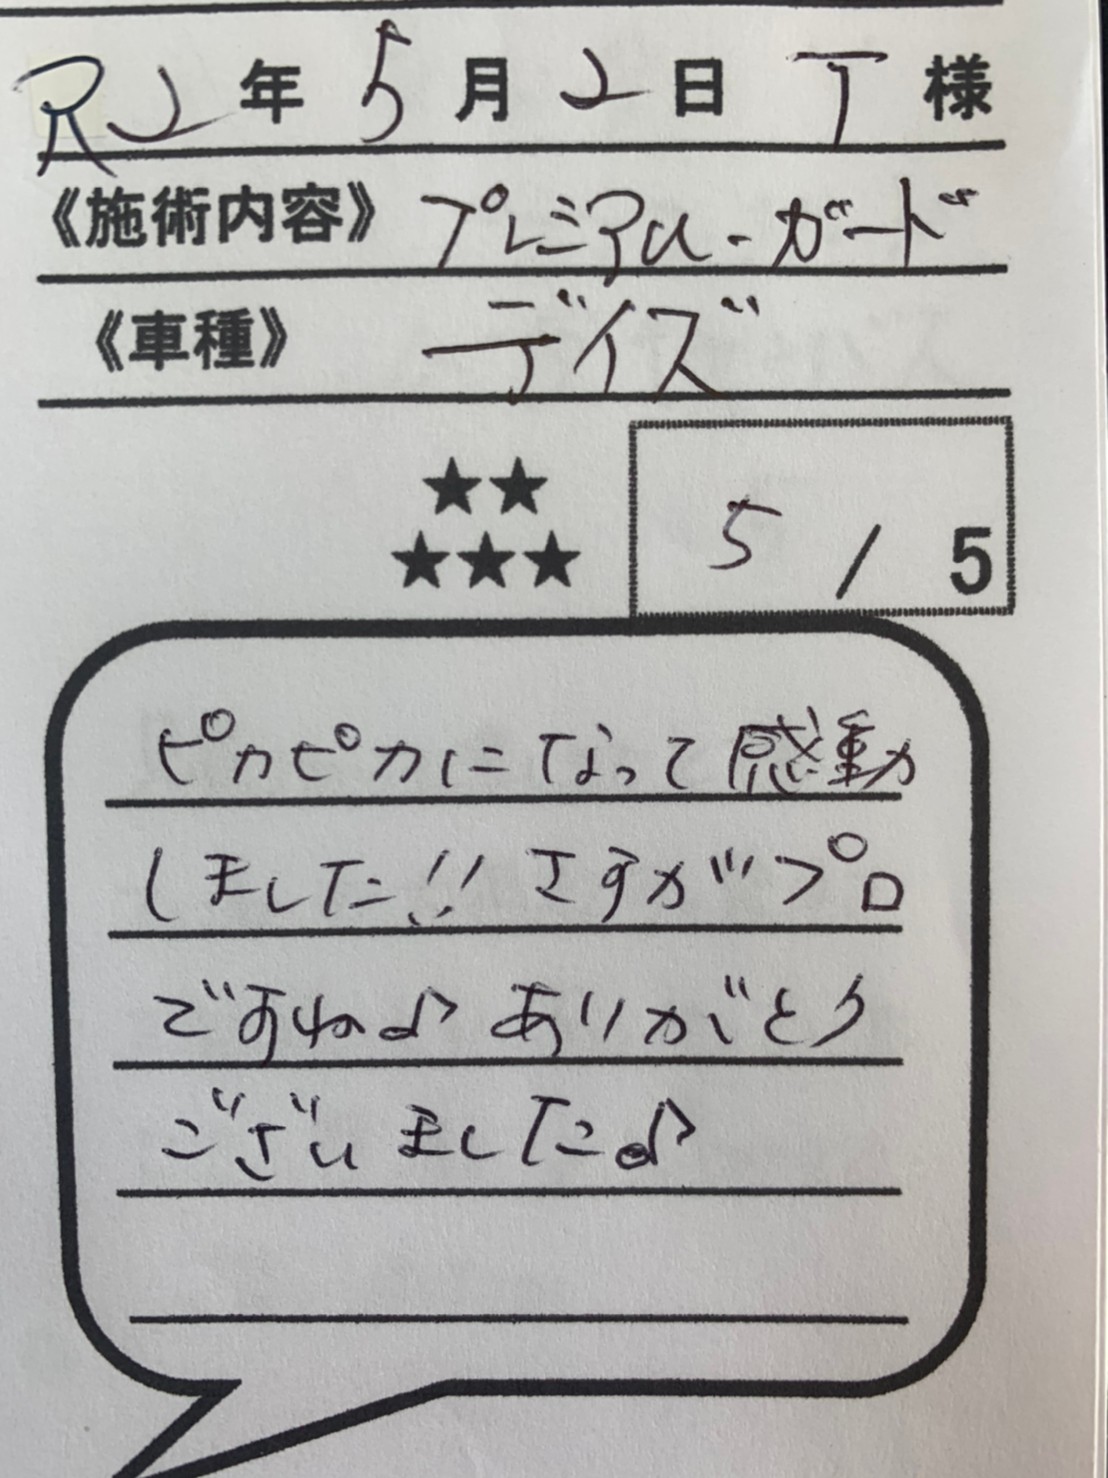 R2年5月2日 T様
《施術内容》プレミアム・ガード
《車種》デイズ
★★
★★★
5/5
ピカピカになって感動
しました!! さすがプロ
ですね♪ ありがとう
ございました♪